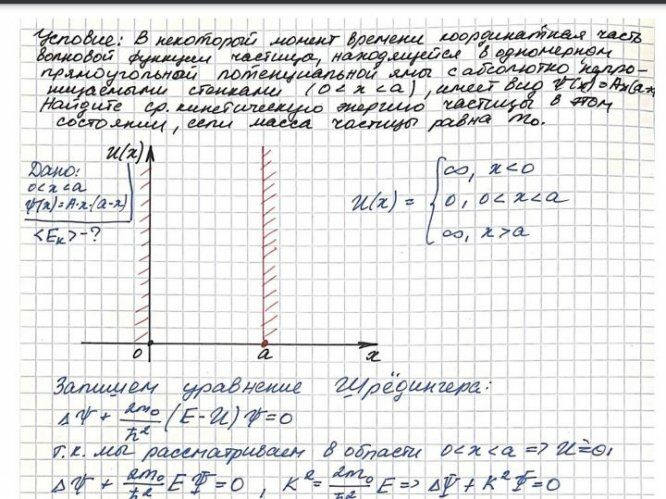 Условие: В некоторый момент времени координатная часть
волновой функции частицы, находящейся в одномерном
прямоугольной потенциальной ямы с абсолютно непро-
ницаемыми стенками (0<x<a), имеет вид Ψ(x)=Ax(a-x
Найдите ср. кинетическую энергию частицы в этом
состоянии, если масса частицы равна m₀.
Дано:
0<x<a
Ψ(x)=A·x·(a-x)
<Eк>-?
U(x)
0
a
x
U(x) = { ∞, x<0
0, 0<x<a
∞, x>a
Запишем уравнение Шрёдингера:
ΔΨ + 2m₀/ħ² (E-U)Ψ=0
т.к. мы рассматриваем в области 0<x<a => U=0,
ΔΨ + 2m₀/ħ² EΨ=0, K²=2m₀/ħ² E => ΔΨ+K²Ψ=0